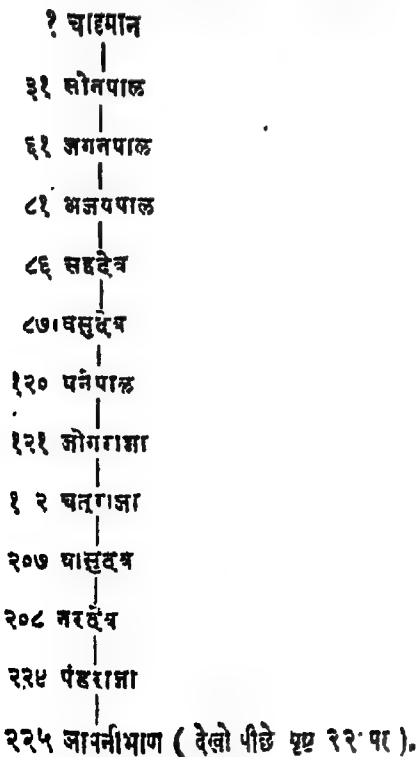 १ चाहमान
३१ सोनपाल
६१ जगनपाल
८१ अजयपाल
८६ सहदेव
८७ वसुदेव
१२० धर्नपाल
१२१ जोगराजा
१ २ चत्राजा
२०७ वासुदेव
२०८ नरदेव
२२४ पंडराजा
२२५ ( देखो पीछे पृष्ट २२ पर ).